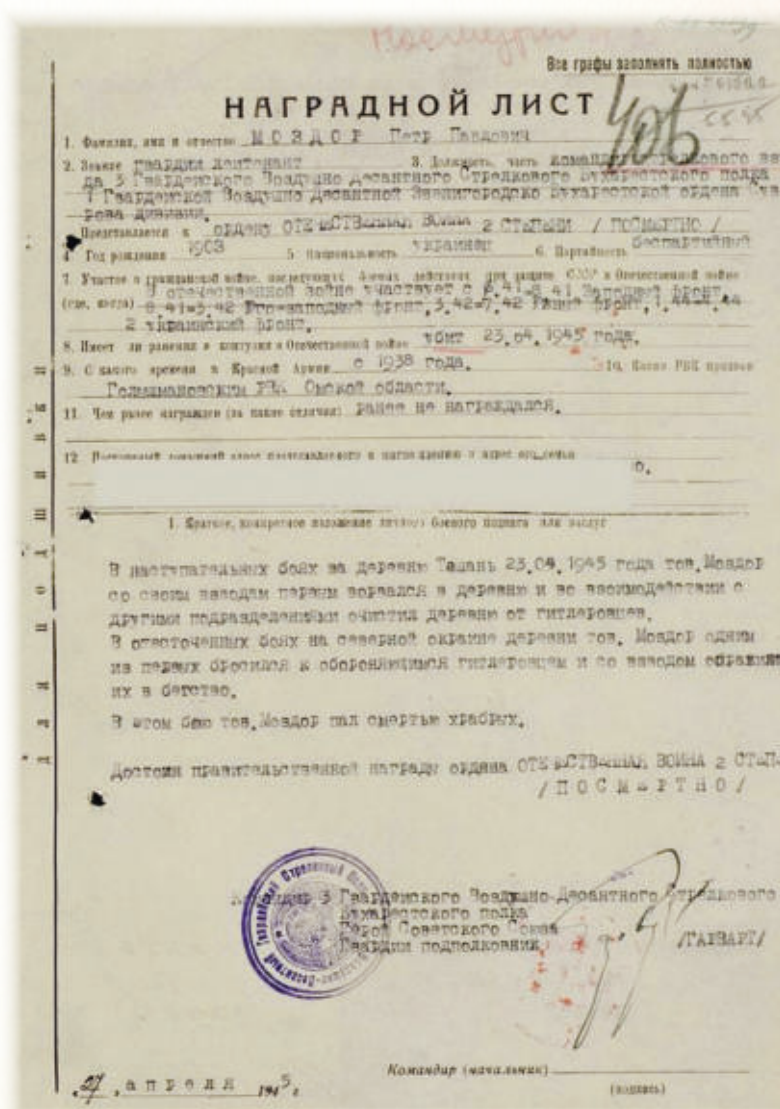 Посмертно
Все графы заполнять полностью
НАГРАДНОЙ ЛИСТ
406
1. Фамилия, имя и отчество МОЗДОР Петр Павлович
2. Звание гвардии лейтенант 3. Должность, часть командир стрелкового взво
да 3 Гвардейского Воздушно Десантного Стрелкового Бухарестского полка
1 Гвардейской Воздушно Десантной Звенигородско Бухарестской ордена Сува
рова дивизии.
Представляется к ордену ОТЕЧЕСТВЕННАЯ ВОЙНА 2 СТЕПЕНИ / ПОСМЕРТНО /
4. Год рождения 1903 5. Национальность украинец 6. Партийность беспартийный
7. Участие в гражданской войне, последующих боевых действиях при защите СССР и Отечественной войне
(где, когда) В отечественной войне участвует с 6.41-8 41 Западный фронт,
8 41-3.42 Юго-западный фронт, 3.42-7.42 фронт, 1.44-4.44
2 украинский фронт.
8. Имеет ли ранения и контузии в Отечественной войне убит 23.04.1945 года.
9. С какого времени в Красной Армии с 1938 года. 10. Каким РВК призван
РВК Омской области.
11. Чем ранее награжден (за какие отличия) ранее не награждался.
12. Постоянный домашний адрес представляемого к награждению и адрес его семьи
о.
1. Краткое, конкретное изложение личного боевого подвига или заслуг
В наступательных боях за деревню Ташань 23.04.1945 года тов. Моздор
со своим взводам первым ворвался в деревню и во взоимодействии с
другими подразделениями очистил деревню от гитлеровцев.
В ожесточенных боях на северной окраине деревни тов. Моздор одним
из первых бросился к обороняющимся гитлеровцем и со взводом обратил
их в бегство.
В этом бою тов. Моздор пал смертью храбрых.
Достоин правительственной награды ордена ОТЕЧЕСТВЕННАЯ ВОЙНА 2 СТЕП
/ П О С М Е Р Т Н О /
Командир 3 Гвардейского Воздушно-Десантного Стрелкового
Бухарестского полка
Герой Советского Союза
Гвардии подполковник /ГАЕВАРТ/
Командир (начальник)
(подпись)
27. апреля 1945.